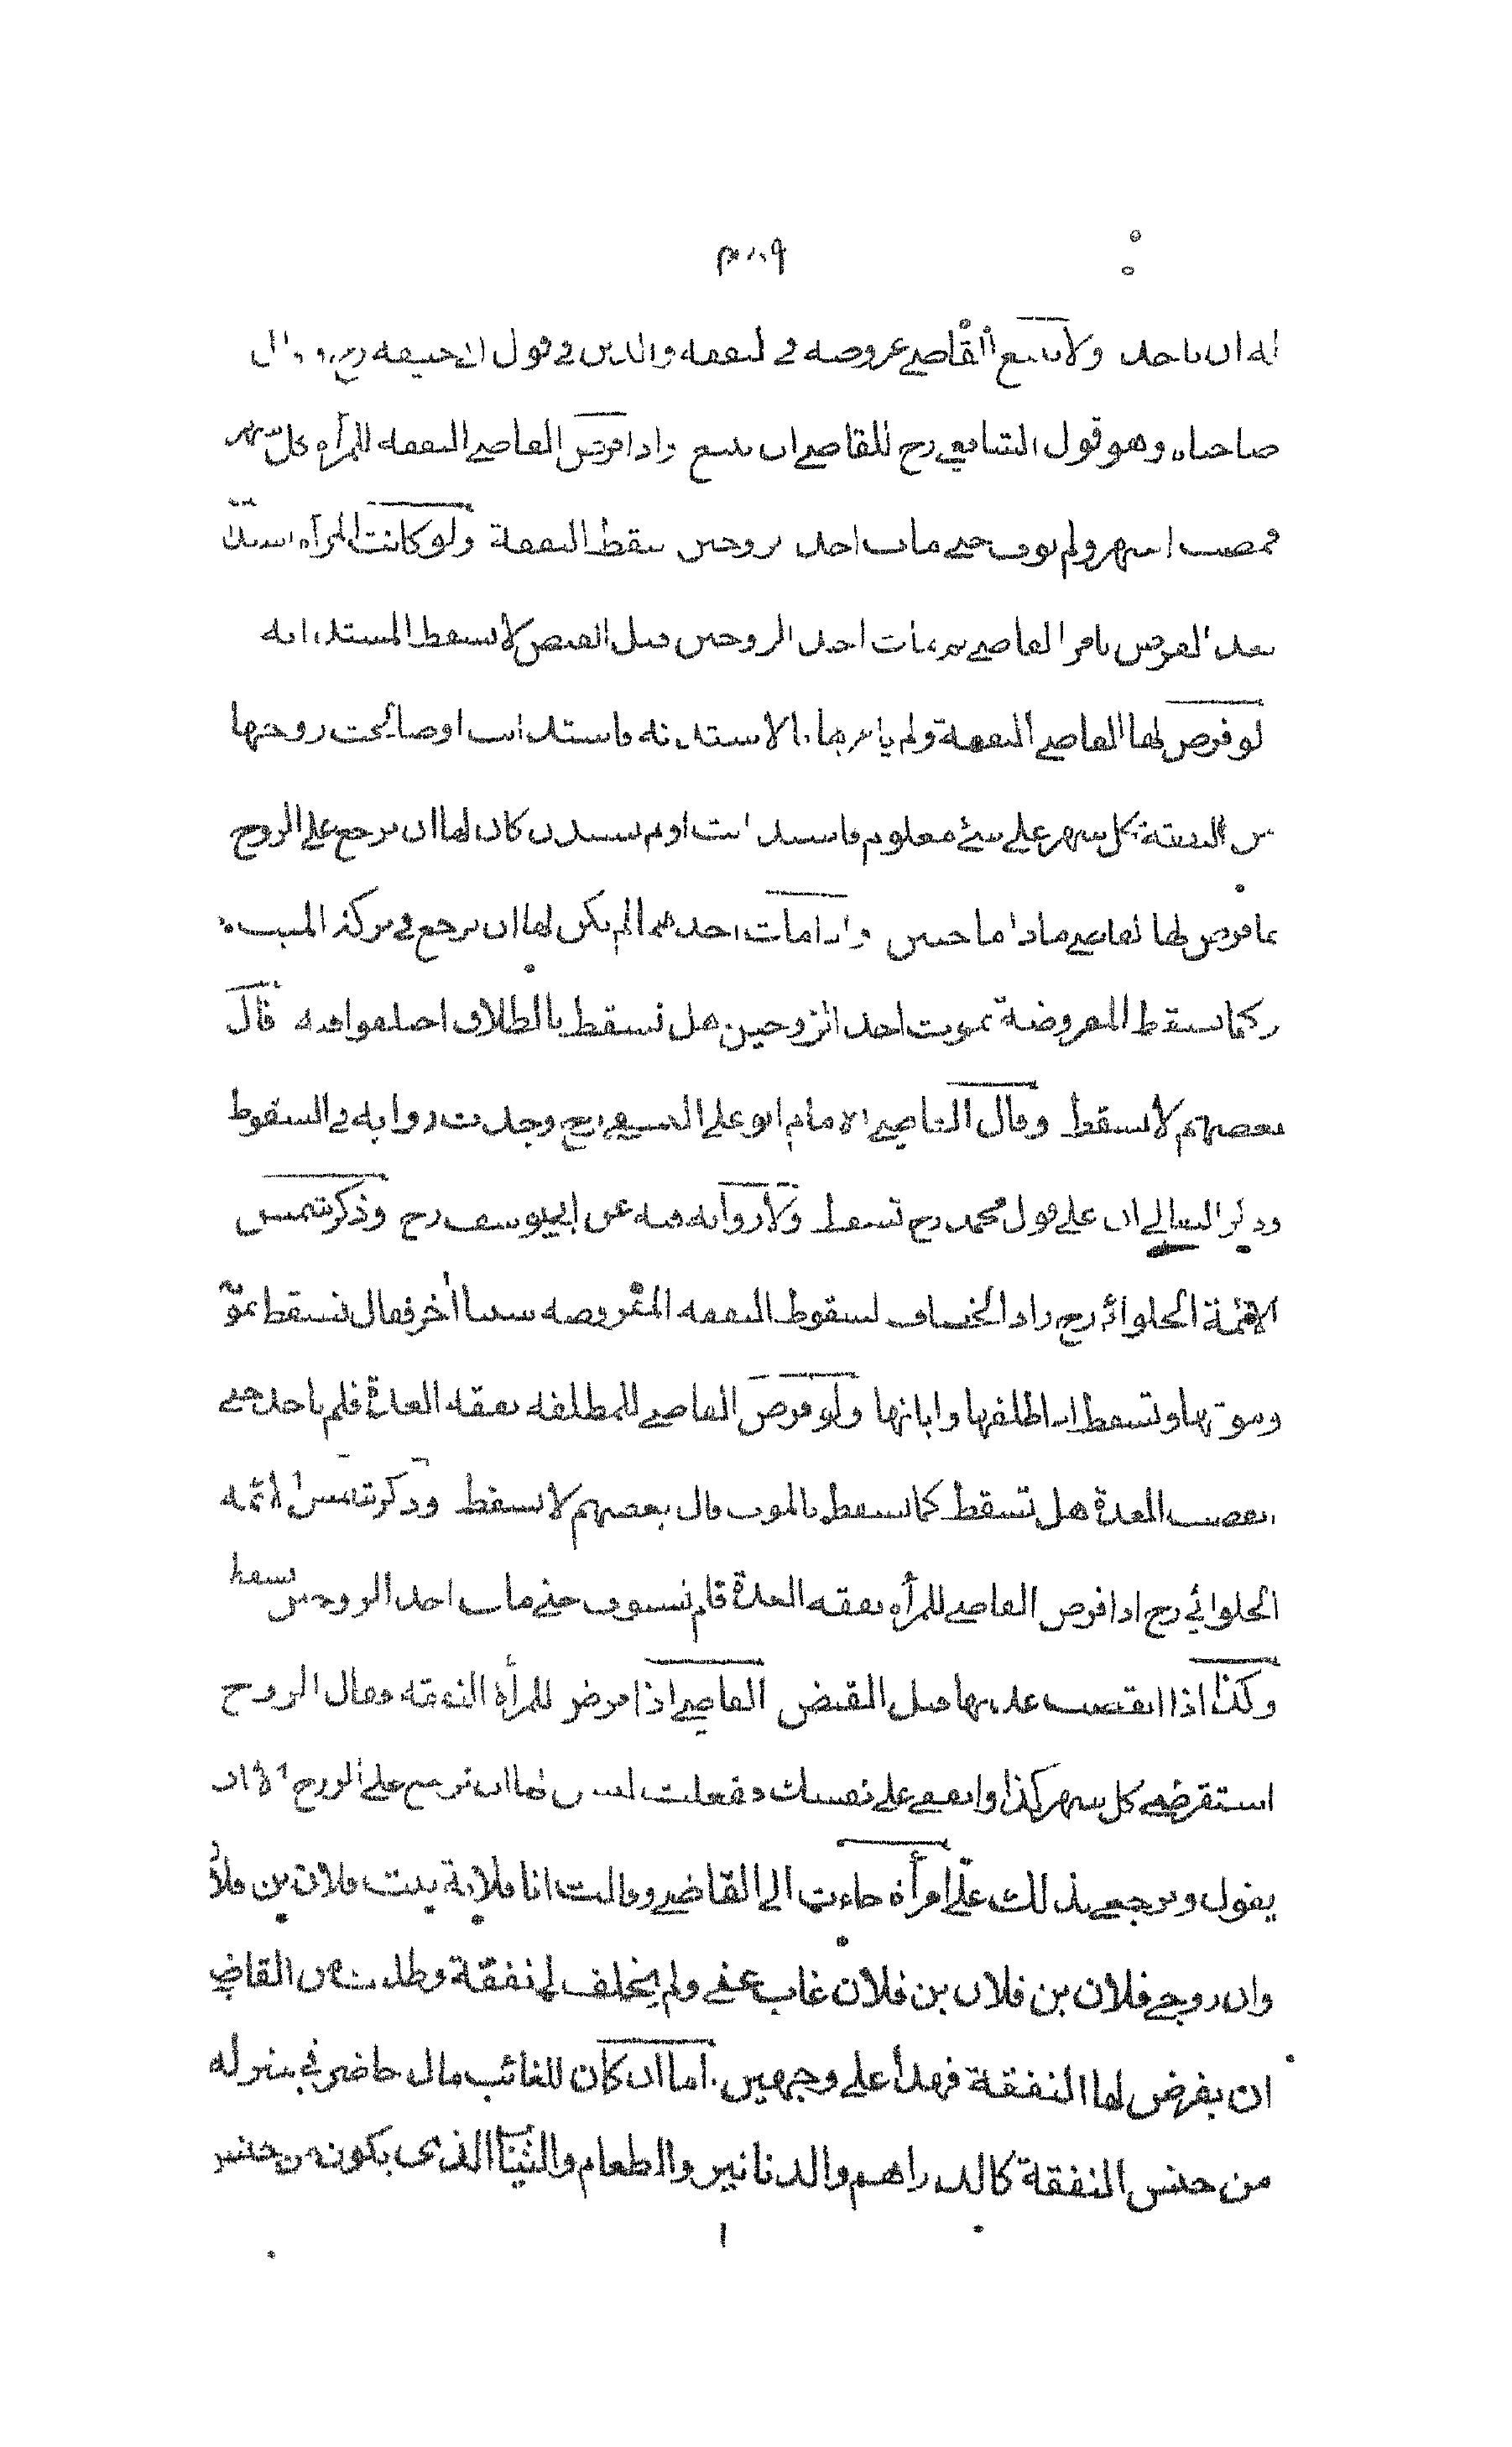 له ان ياخذ ولا يبيع القاضي عروضه في النفقة والدين في قول ابي حنيفة رح وقال
صاحباه وهو قول الشافعي رح للقاضي ان يبيع واذا فرض القاضي النفقة للمرأة كل شهر
فمضت اشهر ولم يوف حتى مات احد الزوجين سقط النفقة ولو كانت المرأة استدانت
بعد الفرض بامر القاضي ثم مات احد الزوجين قبل القبض لا يسقط المستدانة
لو فرض لها القاضي النفقة ولم يامرها بالاستدانة فاستدانت او صالحت زوجها
من النفقة كل شهر على شئ معلوم فاستدانت او لم تستدن كان لها ان ترجع على الزوج
بما فرض لها القاضي ماداما حيين واذا مات احدهما لم يكن لها ان ترجع في تركة الميت
وكما يسقط المفروضة بموت احد الزوجين هل تسقط بالطلاق اختلفوا فيه قال
بعضهم لا تسقط وقال القاضي الامام ابو علي النسفي رح وجدت رواية في السقوط
وذكر البقالي ان على قول محمد رح تسقط ولا رواية فيه عن ابي يوسف رح وذكر شمس
الائمة الحلوائي رح زاد الخصاف لسقوط النفقة المفروضة سببا آخر فقال تسقط بموته
وموتها وتسقط اذا طلقها وابانها ولو فرض القاضي للمطلقة نفقة العدة فلم ياخذ حتى
انقضت العدة هل تسقط كما تسقط بالموت قال بعضهم لا تسقط وذكر شمس الائمة
الحلوائي رح اذا فرض القاضي للمرأة نفقة العدة فلم تستوف حتى مات احد الزوجين تسقط
وكذا اذا انقضت عدتها قبل القبض القاضي اذا فرض للمرأة النفقة فقال الزوج
استقرضي كل شهر كذا وانفقي على نفسك ففعلت ليس لها ان ترجع على الزوج الا ان
يقول وترجعي بذلك علي امرأة جاءت الى القاضي وقالت انا فلانة بنت فلان بن فلان
وان زوجي فلان بن فلان بن فلان غاب عني ولم يخلف لي نفقة وطلبت من القاضي
ان يفرض لها النفقة فهذا على وجهين اما ان كان للغائب مال حاضر في منزله
من جنس النفقة كالدراهم والدنانير والطعام والثياب الذي يكون من جنس